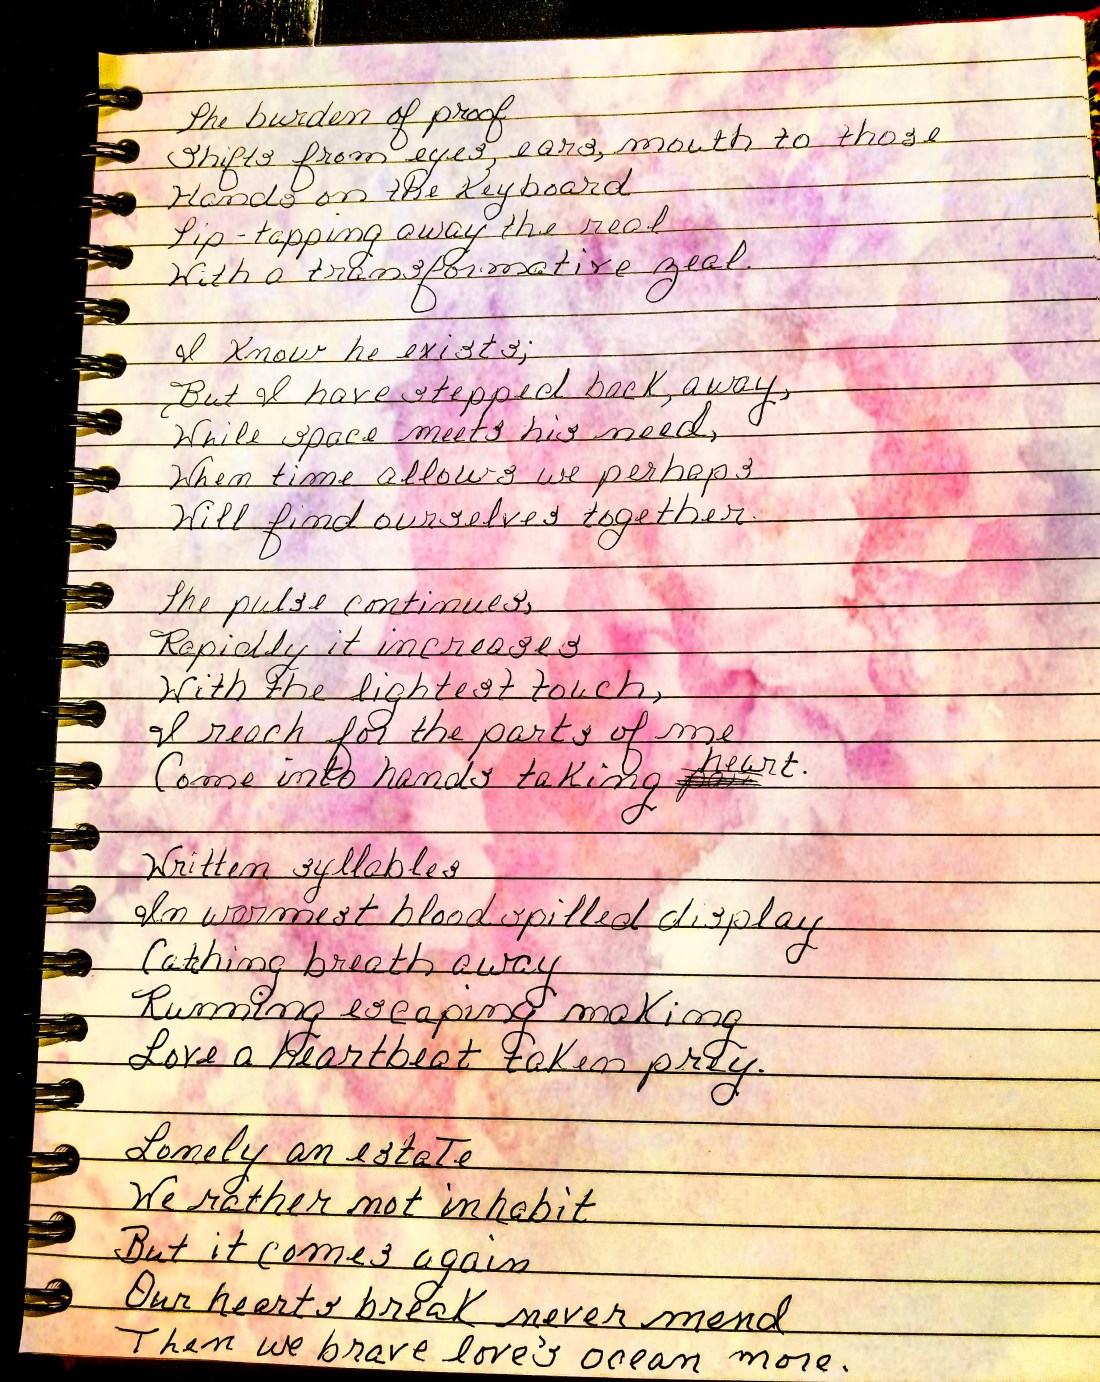 The burden of proof
Shifts from eyes, ears, mouth to those
Hands on the Keyboard
Lip-tapping away the real
With a transformative zeal.
I Know he exists;
But I have stepped back, away,
While space meets his need,
When time allows we perhaps
Will find ourselves together.
The pulse continues,
Rapidly it increases
With the lightest touch,
I reach for the parts of me
Come into hands taking heart.
Written syllables
In warmest blood spilled display
Cathing breath away
Running escaping making
Love a heartbeat taken prey.
Lonely an estate
We rather not inhabit
But it comes again
Our hearts break never mend
Then we brave love's ocean more.